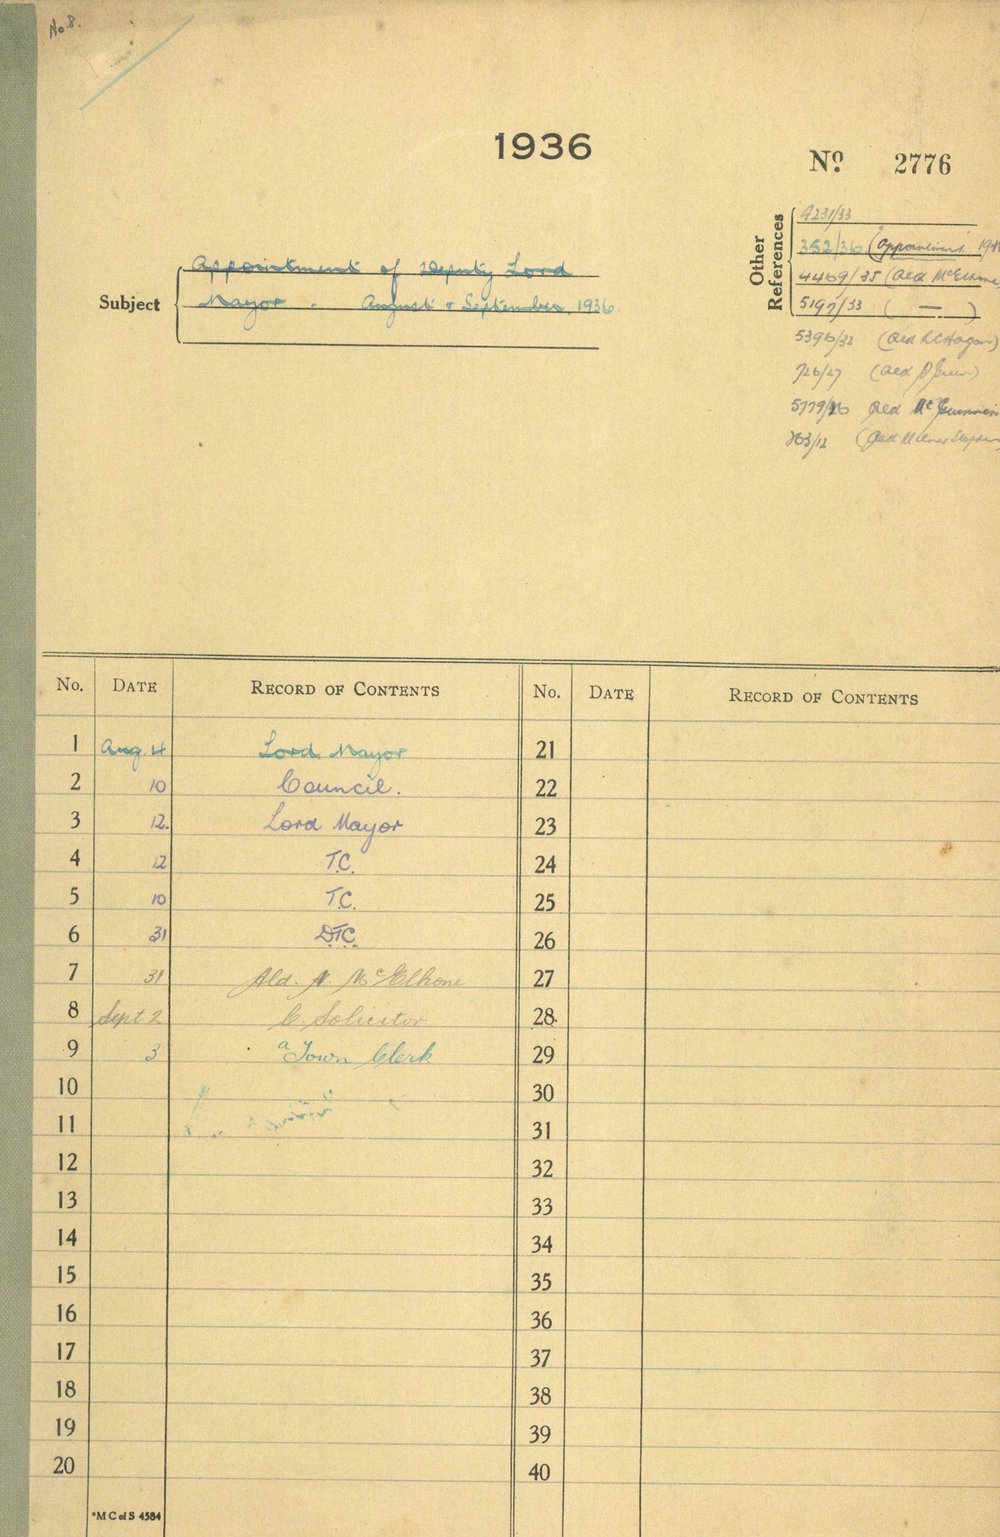 No. 8.
1936
No. 2776
Other References
4231/33
352/36 (appointment
4469/35 (Ald McElhone
5197/33 ( — )
5396/32 (Ald
726/27 (Ald
5779/26 Ald McGuinness
763/12 (Ald Milner Stephen
Subject
Appointment of Deputy Lord
Mayor. August & September, 1936.
No. DATE RECORD OF CONTENTS No. DATE RECORD OF CONTENTS
1 Aug. 4 Lord Mayor 21
2 10 Council. 22
3 12. Lord Mayor 23
4 12 T.C. 24
5 10 T.C. 25
6 31 D.T.C. 26
7 31 Ald. A. McElhone 27
8 Sept 2 C. Solicitor 28
9 3 a Town Clerk 29
10 30
11 31
12 32
13 33
14 34
15 35
16 36
17 37
18 38
19 39
20 40
*M C of S 4584